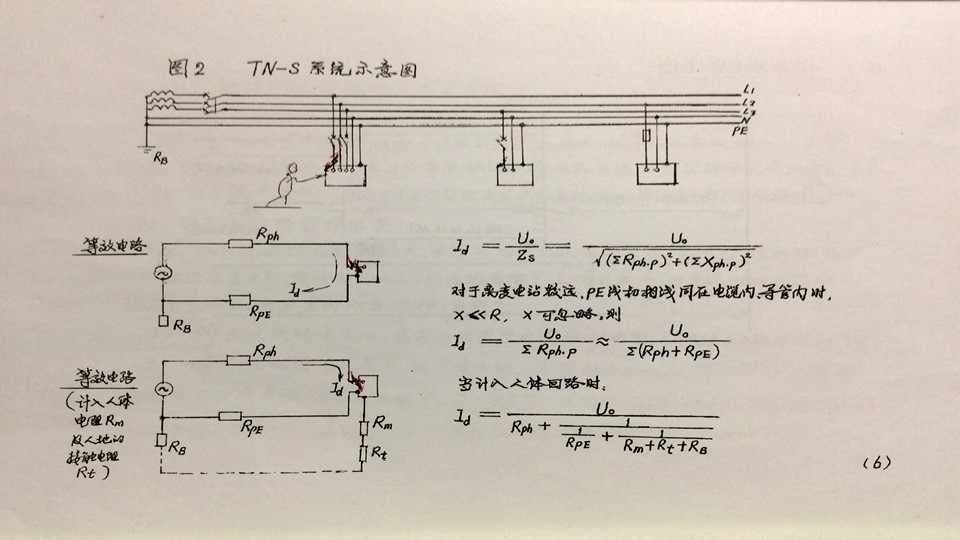 图2 TN-S 系统示意图
L1
L2
L3
N
PE
RB
等效电路
Rph
Id
RPE
RB
Id = U₀/Zs = U₀/√((ΣRph.p)²+(ΣXph.p)²)
对于离变电站较远，PE线和相线同在电缆内、导管内时，
X≪R，X可忽略，则
Id = U₀/ΣRph.p ≈ U₀/Σ(Rph+RPE)
等效电路
(计入人体
电阻Rm
及人地的
接触电阻
Rt)
Rph
Id
RPE
RB
Rm
Rt
当计入人体回路时：
Id = U₀/(Rph + 1/(1/RPE + 1/(Rm+Rt+RB)))
(6)